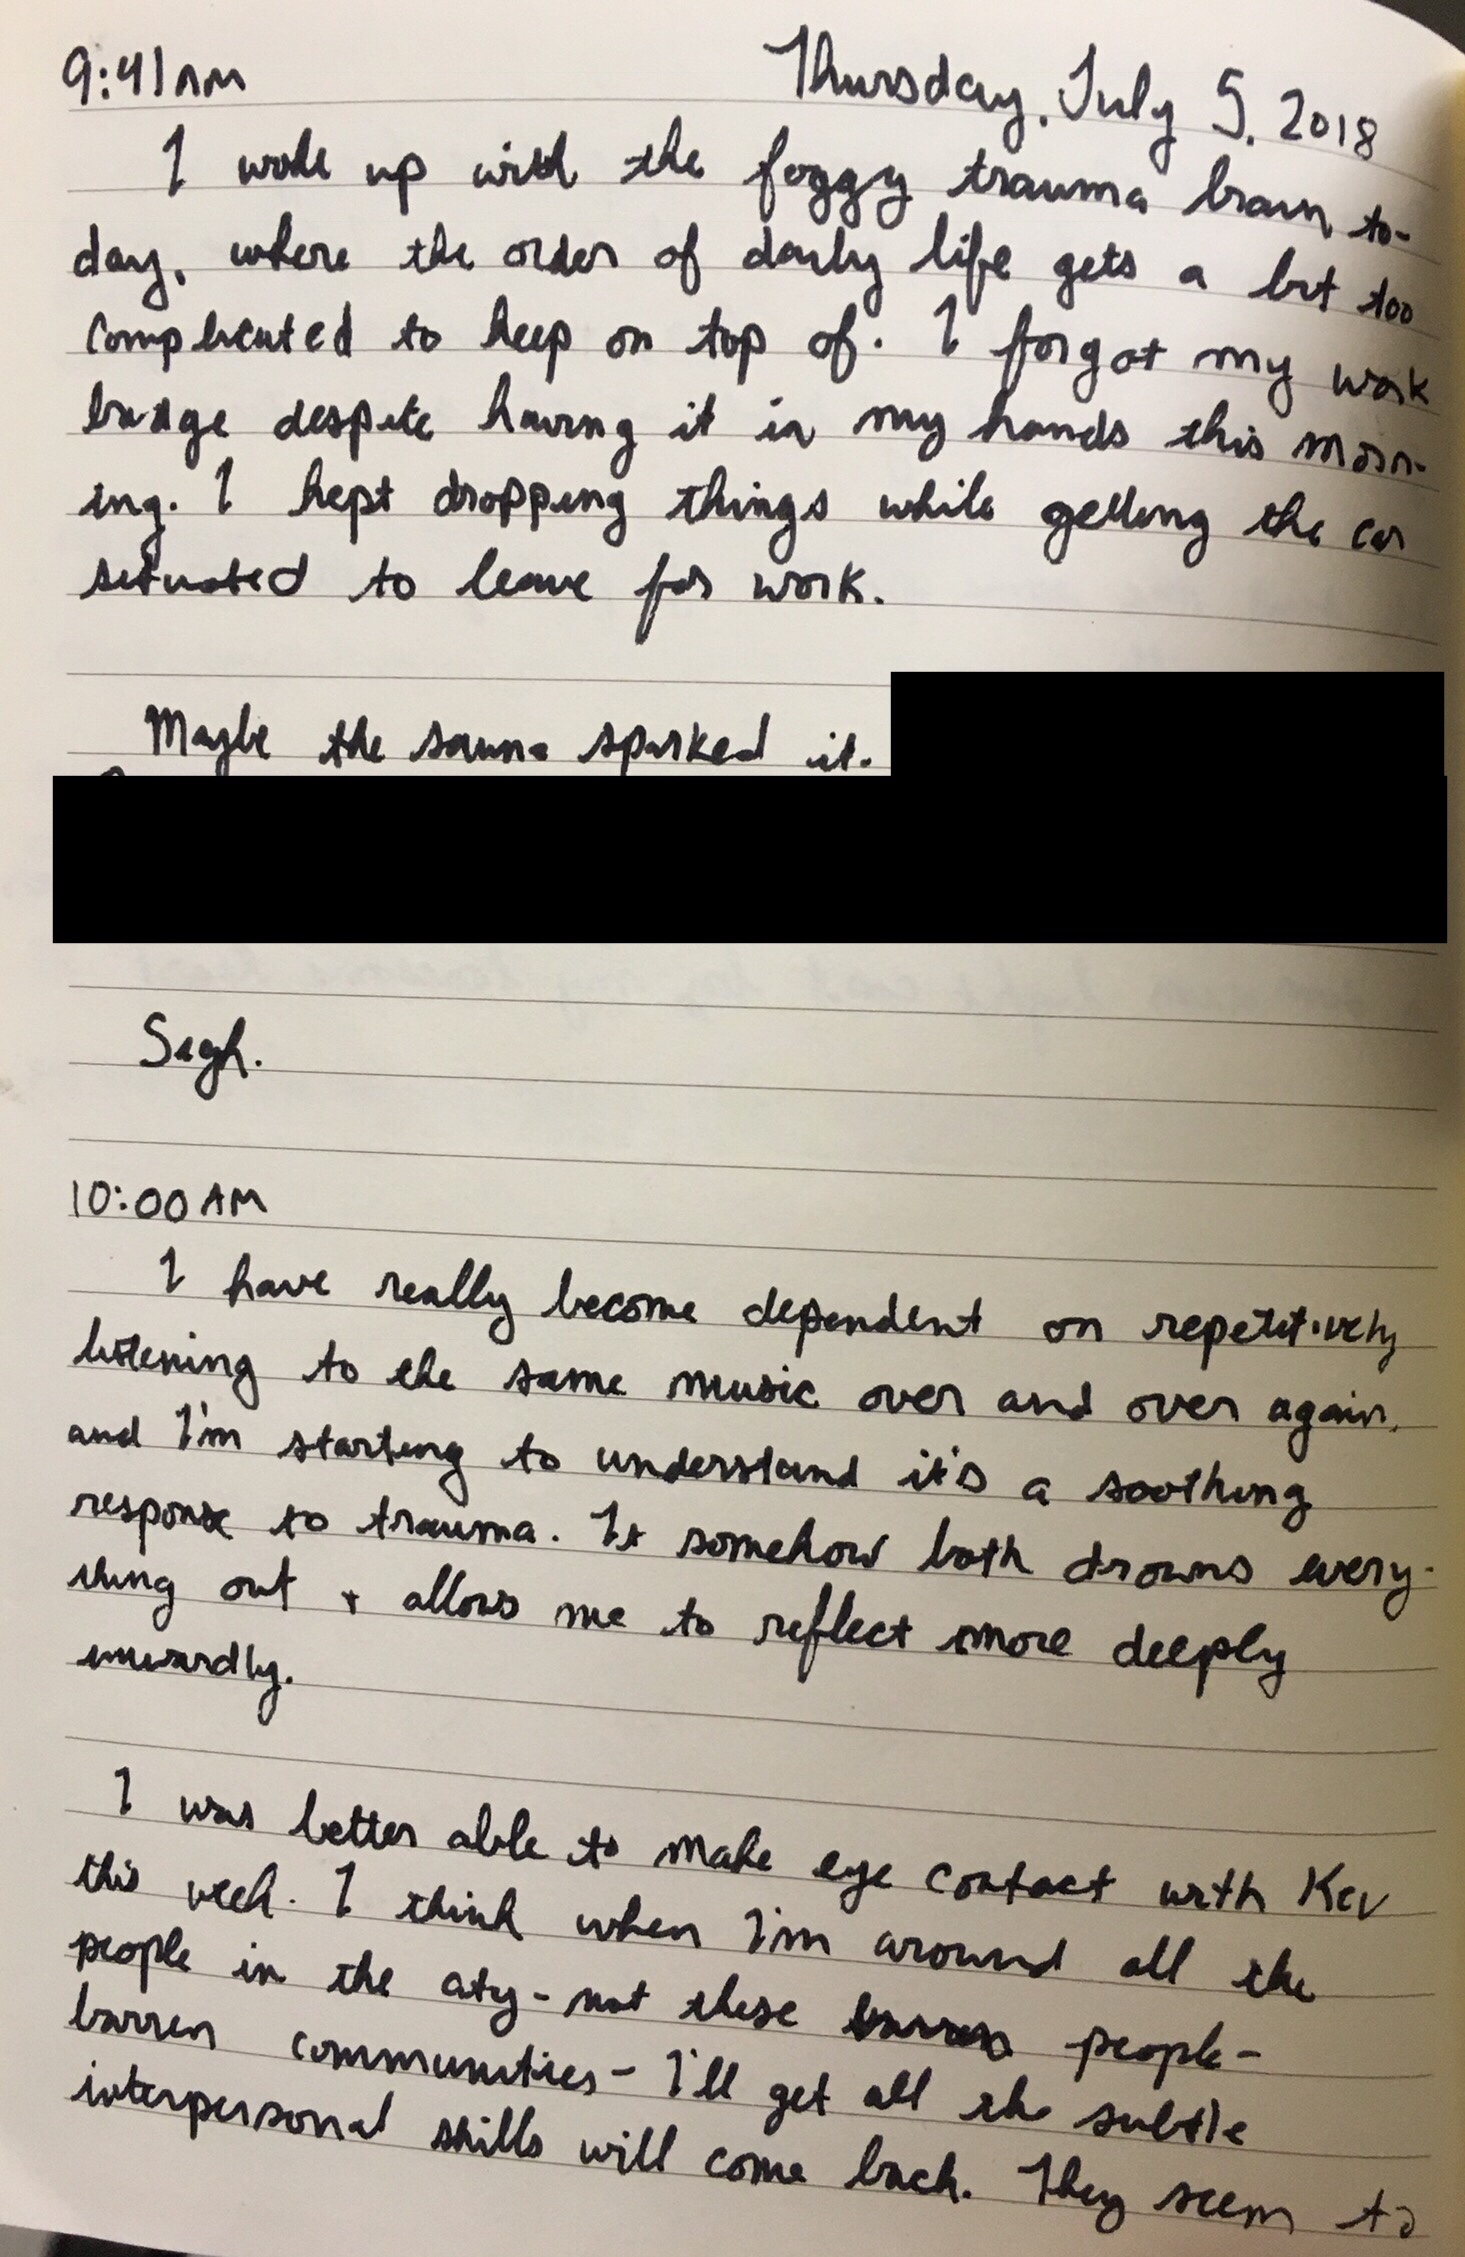 9:41AM
Thursday, July 5, 2018
I woke up with the foggy trauma brain to-
day, where the order of daily life gets a bit too
complicated to keep on top of. I forgot my work
badge despite having it in my hands this morn-
ing. I kept dropping things while getting the car
situated to leave for work.
Maybe the sauna sparked it.
Sigh.
10:00 AM
I have really become dependent on repetitively
listening to the same music over and over again,
and I'm starting to understand it's a soothing
response to trauma. It somehow both drowns every-
thing out + allows me to reflect more deeply
inwardly.
I was better able to make eye contact with Kev
this week. I think when I'm around all the
people in the city - not these barren people -
barren communities - I'll get all the subtle
interpersonal skills will come back. They seem to